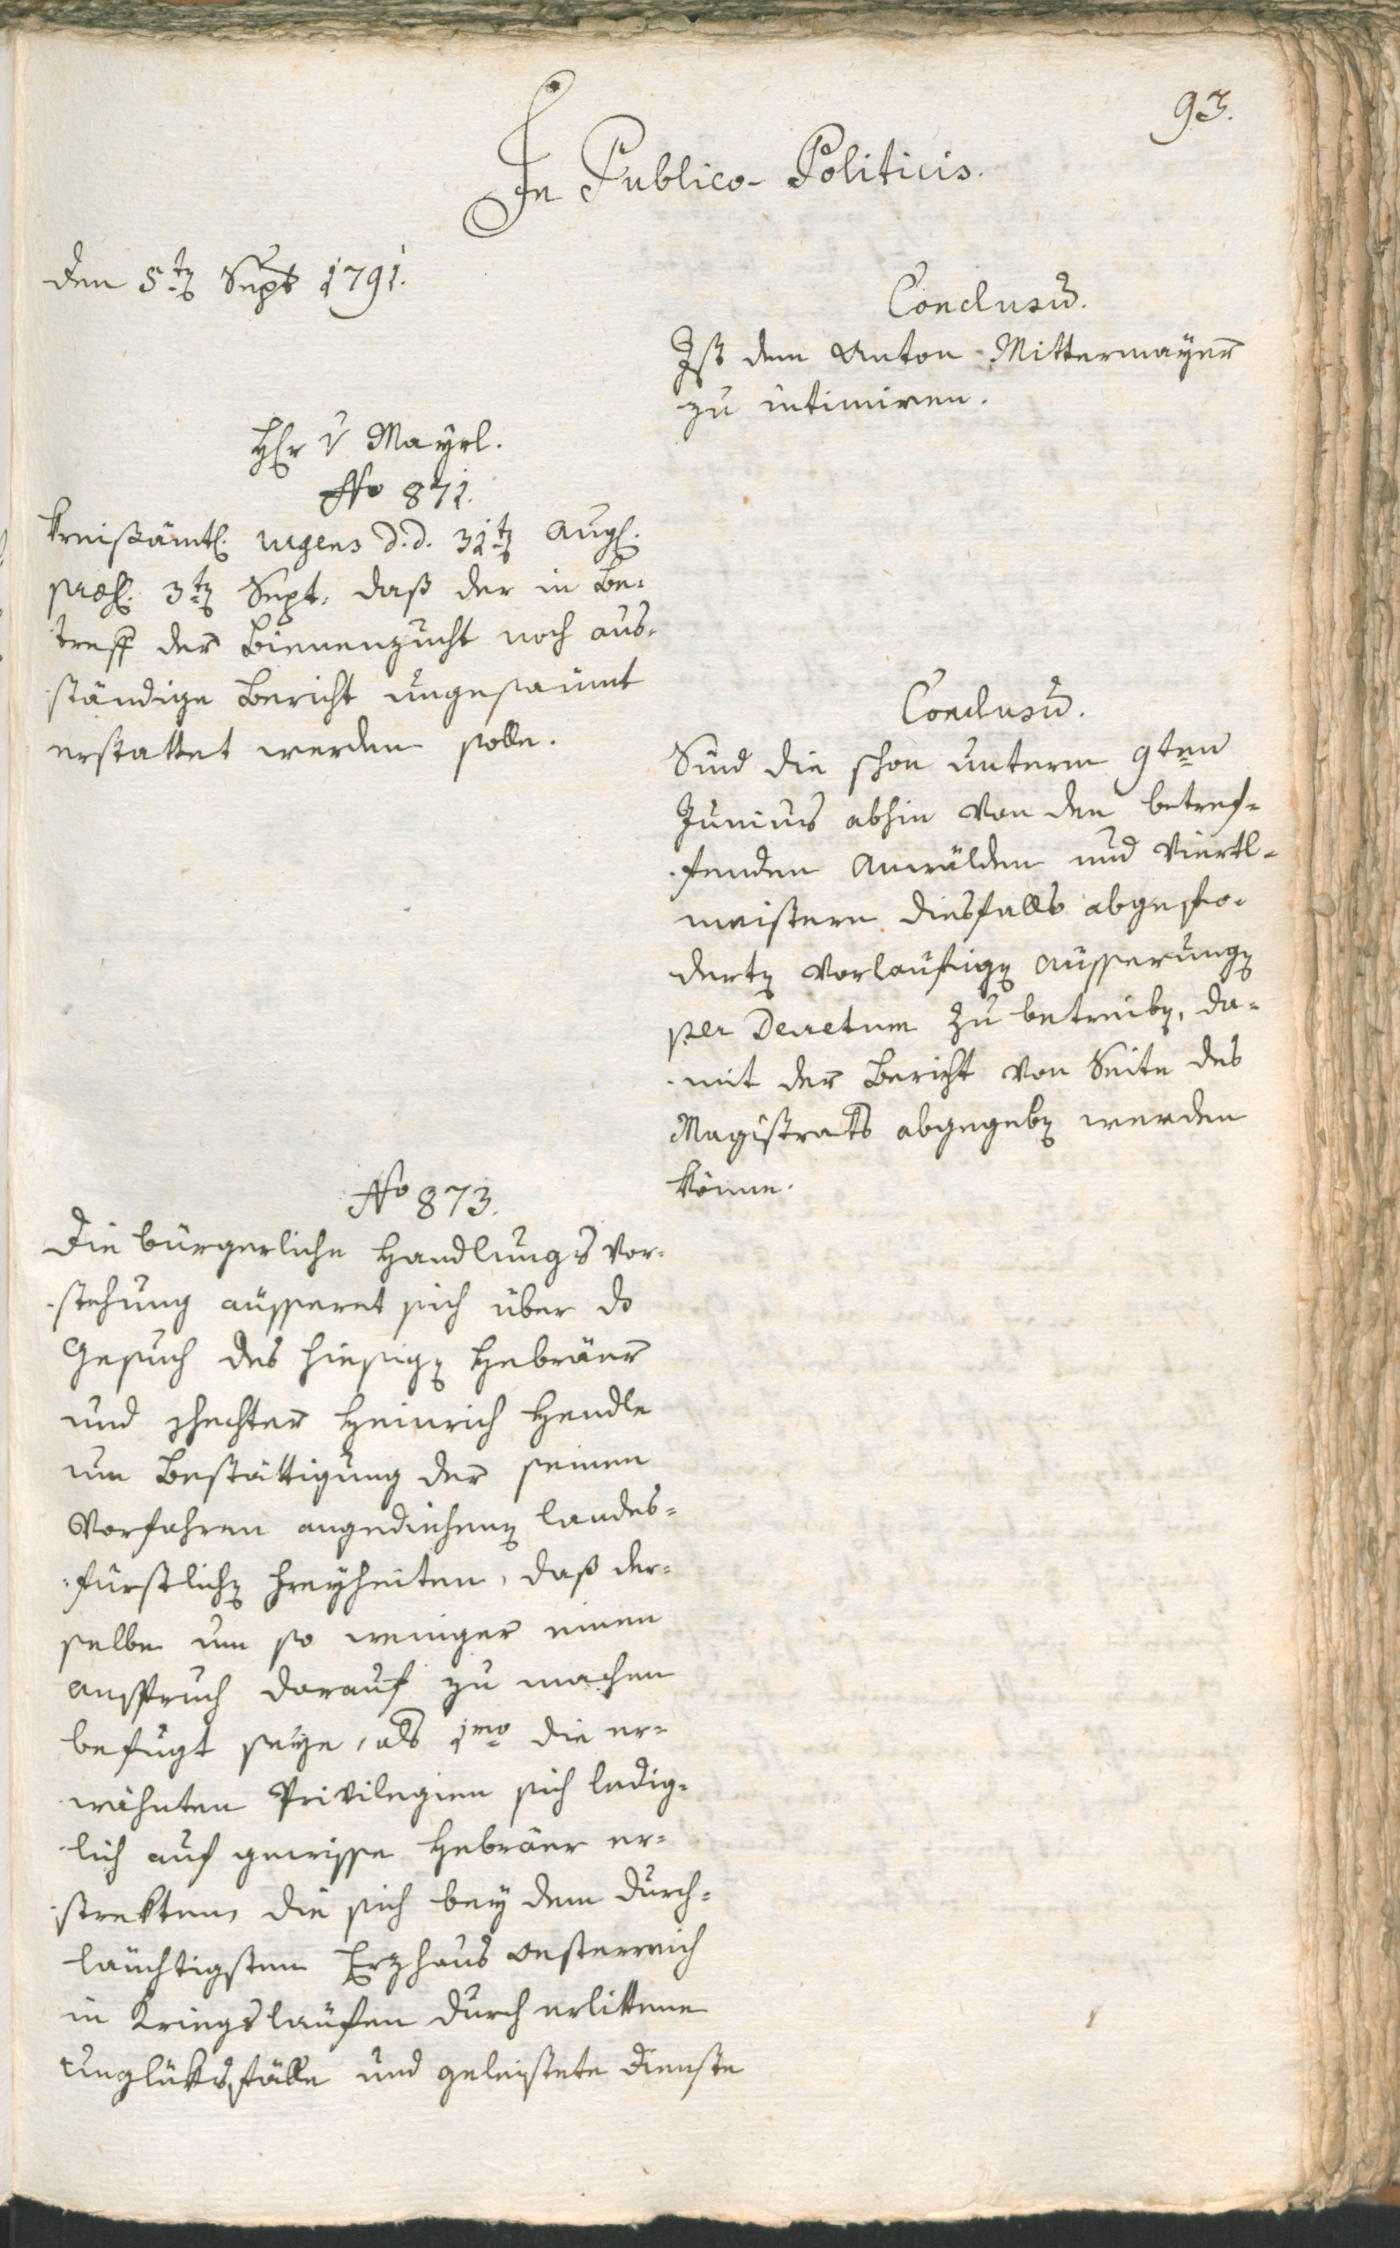 93.
In Publico-Politicis.
den 5t Sept 1791.
Conclusũ.
Ist dem Anton Mittermayer
zu intimiren.
Hr v Mayrl.
No 871.
Kreisämtl. urgens d.d. 31t Aug.
præs. 3t Sept. daß der in Be-
treff der Bienenzucht noch aus-
ständige Bericht ungesaumt
erstattet werden solle.
Conclusũ.
Sind die schon unterm 9ten
Junius abhin von den betref-
fenden Anwälden und Viertl-
meistern diesfalls abgefo-
derten vorlaüfigen aüsserungen
per Decretum zu betreiben, da-
mit der Bericht von Seite des
Magistrats abgegeben werden
könne.
No 873.
Die bürgerliche Handlungs Vor-
stehung aüsseret sich über do
Gesuch des hiesigen Hebräer
und Schechter Heinrich Hendle
um Bestättigung der seinen
Vorfahren angediehenen landes-
fürstlichen Freyheiten, daß der-
selbe um so weniger einen
anspruch darauf zu machen
befugt seye, als 1mo die er-
wähnten Privilegien sich ledig-
lich auf gewisse Hebräer er-
strekten, die sich bey dem Durch-
laüchtigsten Erzhaus Oesterreich
in Kriegslaüfen durch erlittene
Unglüksfälle und geleistete Dienste